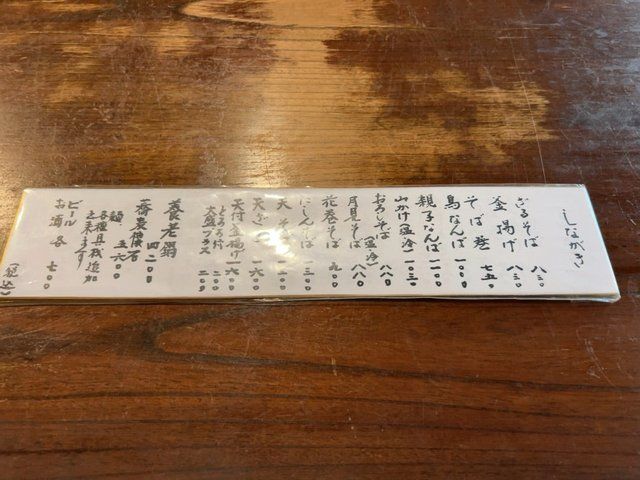 しながき
ざるそば 八三〇
釜揚げ 八三〇
そば巻 七五〇
鳥なんば 一一〇〇
親子なんば 一一〇〇
山かけ(温冷) 一〇三〇
おろしそば(温冷) 八八〇
月見そば 八八〇
花巻そば 九〇〇
にしんそば 一三〇〇
天そば
天ざる 一六〇〇
天付釜揚げ 一六〇〇
とろろ付 二〇〇
大盛プラス 二〇〇
養老鍋 四二〇〇
蕎麦懐石
五六〇〇
各種具我追加
出来ます
ビール
お酒 各 七〇〇
(税込)